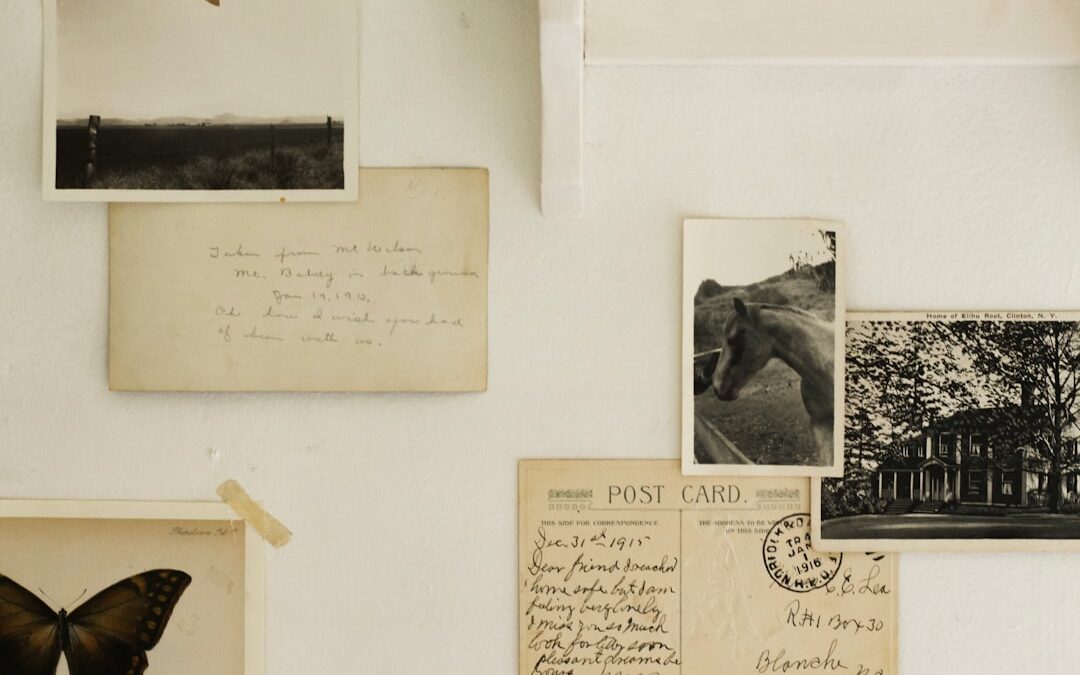 Taken from Mt Wilson
Mt. Baldy in back ground
Jan 19, 1913.
Oh how I wish you had
of been with us.
Home of Elihu Root, Clinton, N. Y.
POST CARD.
THIS SIDE FOR CORRESPONDENCE
THE ADDRESS TO BE
ON THIS SIDE
Dec. 31st 1915
Dear friend I reached
home safe but I am
feeling very lonely
I miss you so much
look for letter soon
pleasant dreams be
yours
NORFOLK &
TR
JAN
1
1916
C. E. Lea
R.H1 Box 30
Blanche